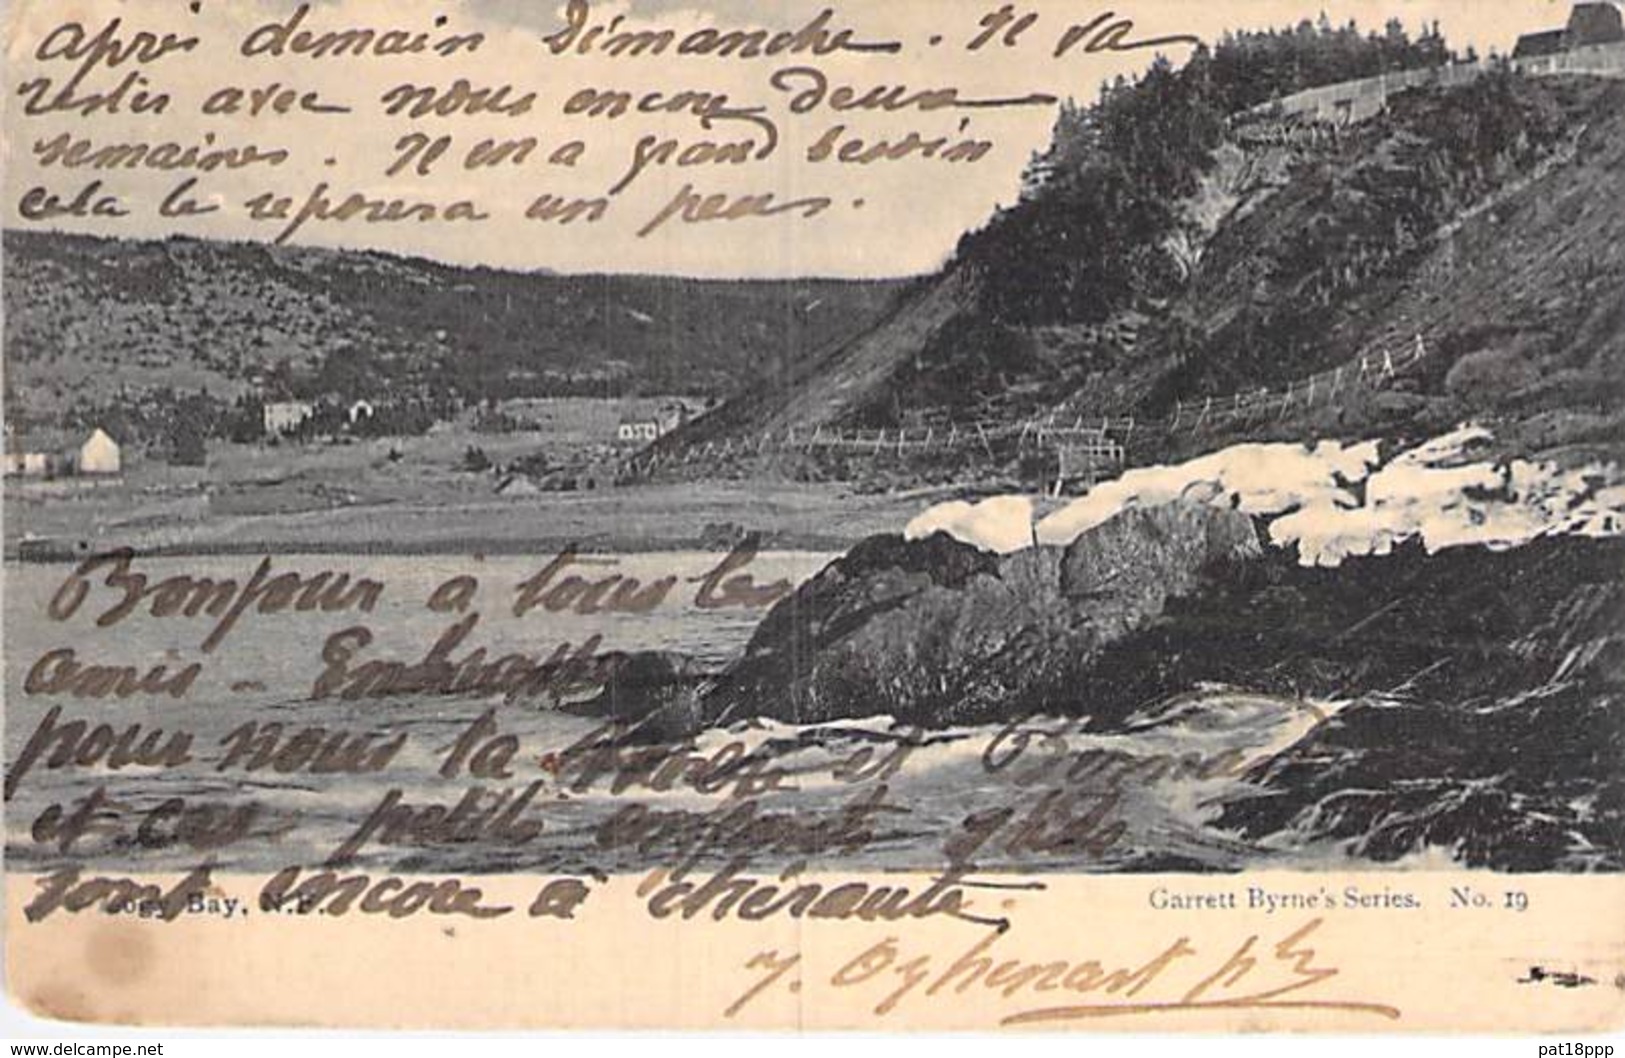 après demain Dimanche. Il va
rester avec nous encore deux
semaines. Il en a grand besoin
cela le reposera un peu.
Bonjour à tous les
amis - Embrasse
pour nous ta et
et ces petits enfants s'ils
sont encore à chéraute.
Logy Bay, N.F.
Garrett Byrne's Series. No. 19
Oyhenart
delcampe.net
pat18ppp